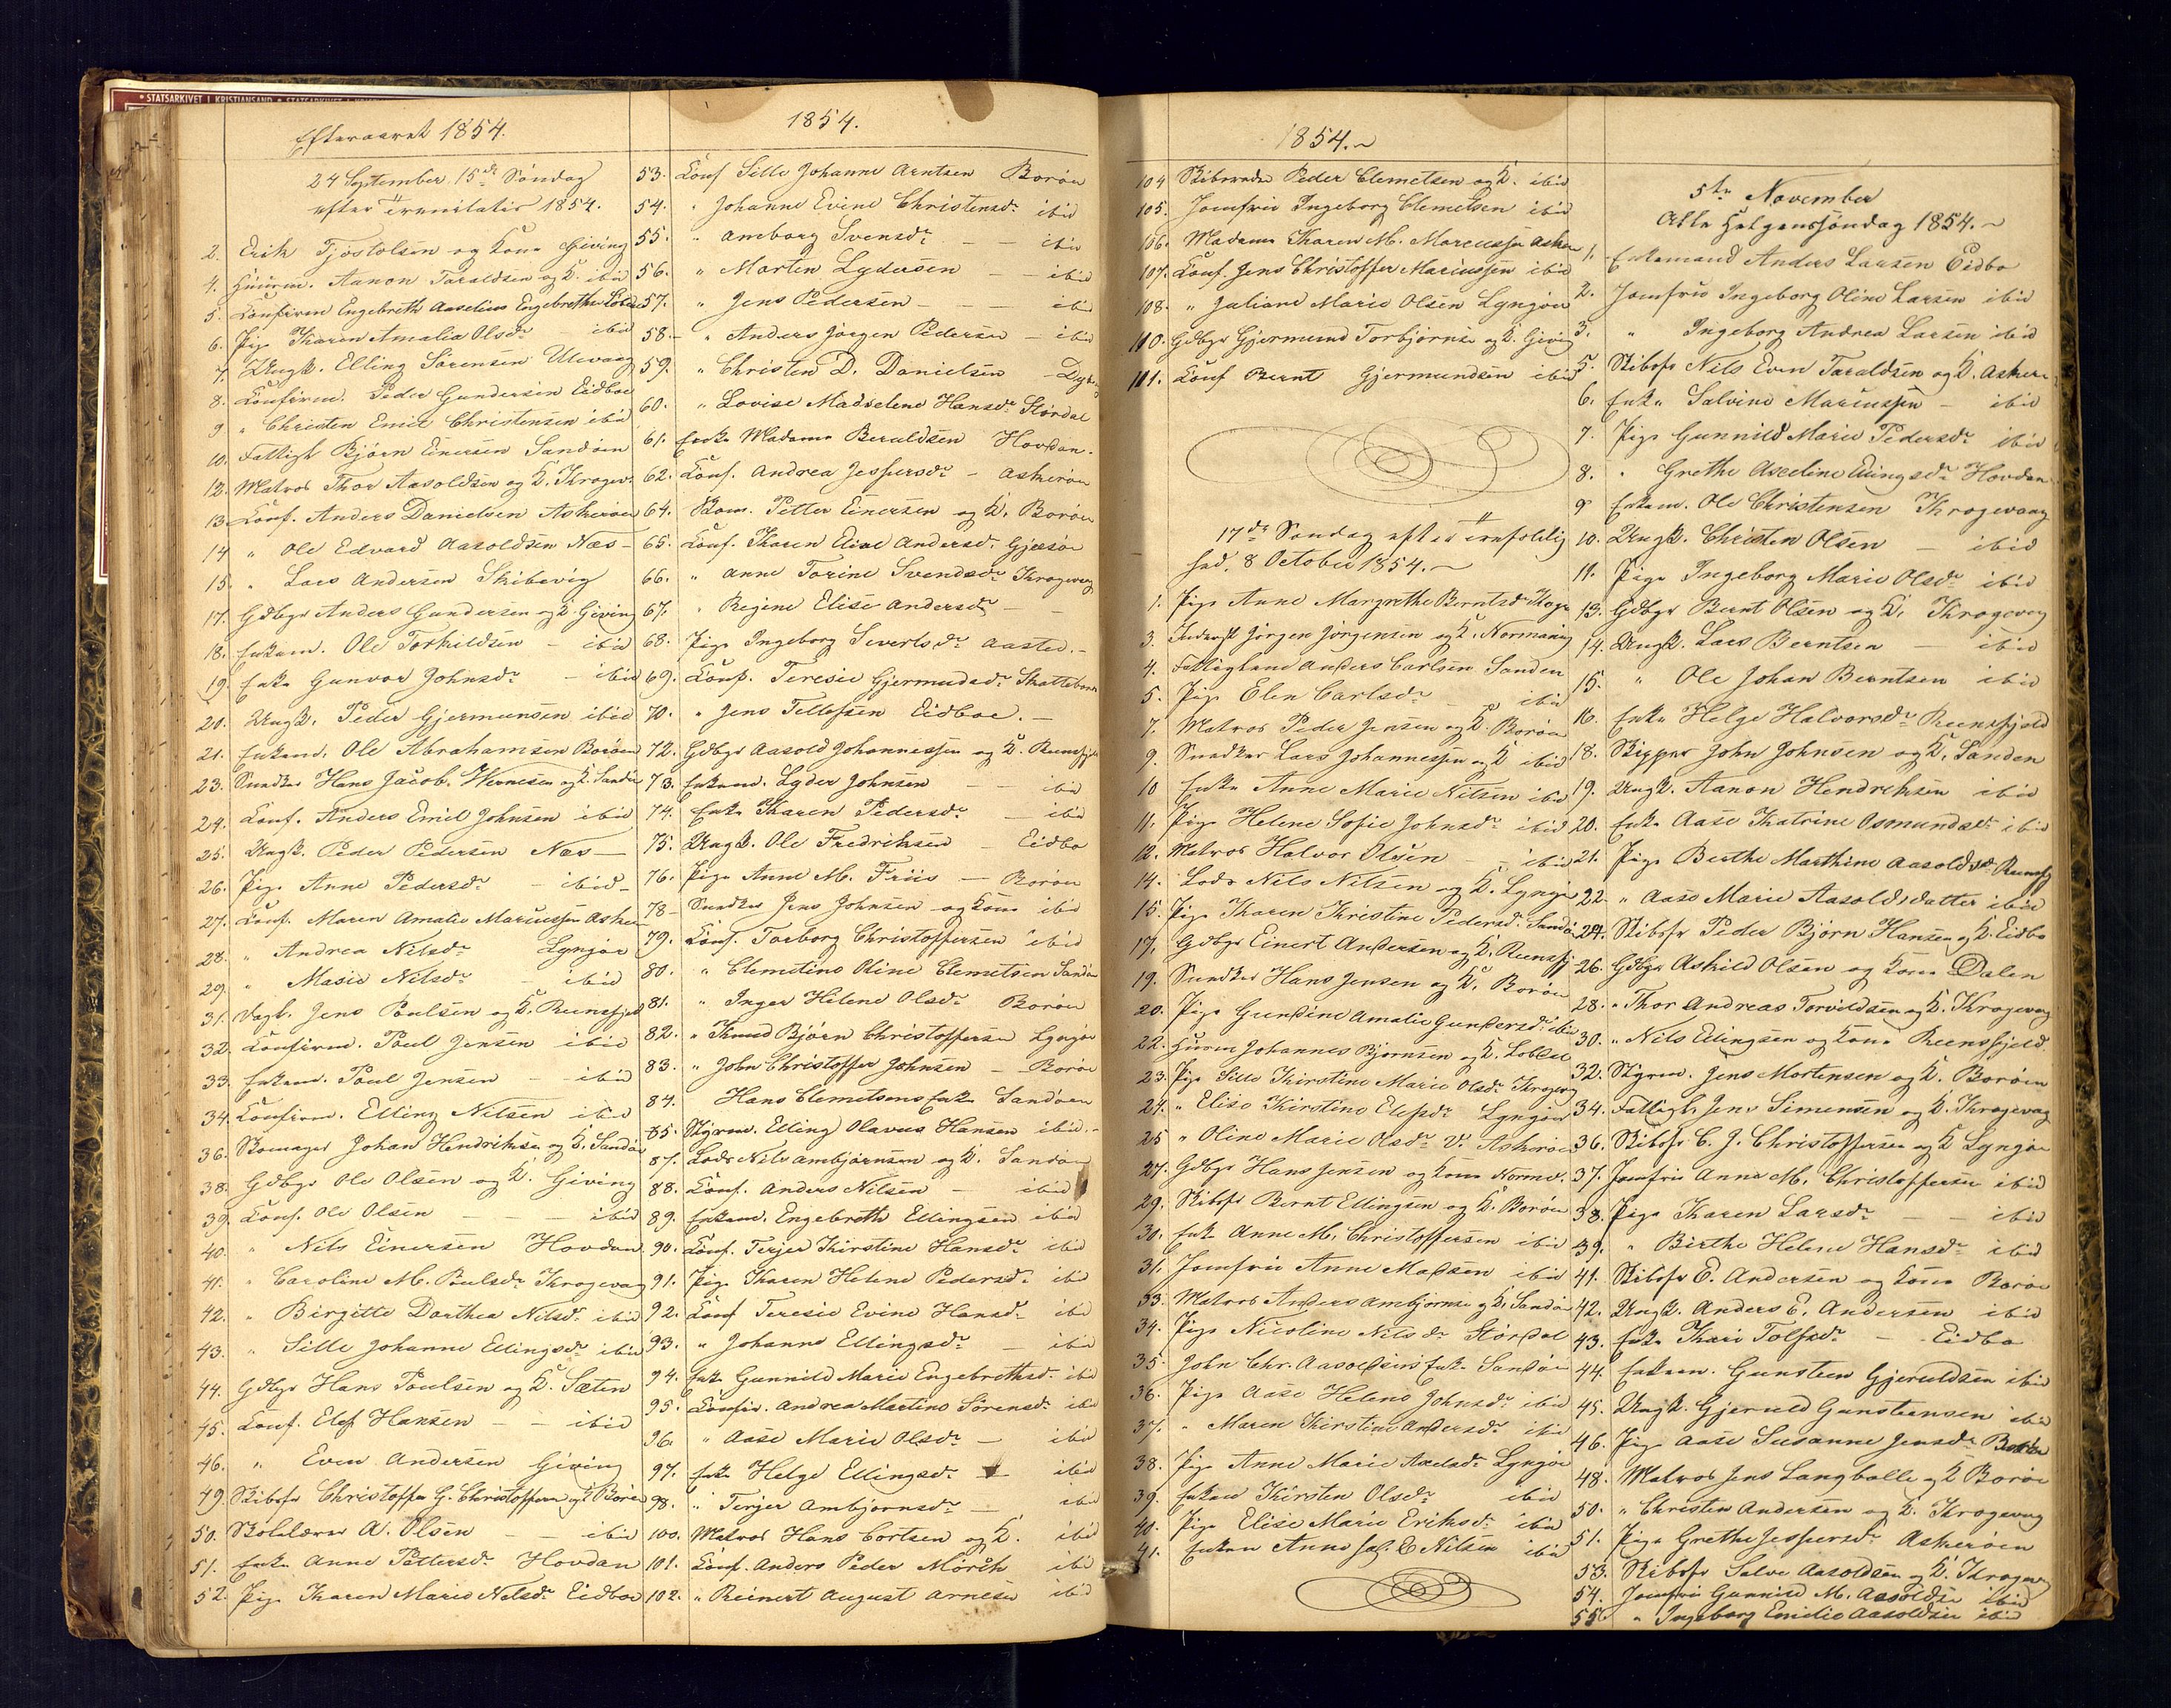 * STATSARKIVET I KRISTIANSAND * STATSARKIVET I
Efteraaret 1854.
24 September 15de Søndag
efter Trinitatis 1854.
2. Erik Tjøstolsen og Kone Giving
4. Huusm. Aanon Taraldsen og K. ibid
5. Confirm. Engebreth Aaselius Engebrethsen
6. Pige Karen Amalia Olsdr ibid
7. Ungk. Elling Sørensen Ulevaag
8. Confirm. Peder Gundersen Eidboe
9 " Christen Emil Christensen ibid
10. Fattigl Bjørn Einersen Sandøen
12. Matros Thor Aasoldsen og K. Krogev.
13 Conf. Anders Danielsen Askerøen
14 " Ole Edvard Aasoldsen Næs —
15. " Lars Andersen Skibevig
17. Gdbgr Anders Gundersen og K. Giving
18. Enkem. Ole Torkildsen — ibid
19. Enke Gunvor Johnsdr — ibid
20. Ungk. Peder Gjermunsen ibid
21. Enkem. Ole Abrahamsen Borøen
23. Snedker Hans Jacob Wernesen og K. Sandø
24. Conf. Anders Emil Johnsen ibid
25. Ungk. Peder Pedersen Næs —
26. Pige Anne Pedersdr — ibid —
27. Conf. Maren Amalie Mariussen Asker
28. " Andrea Nilsdr Lyngøe
29. " Masie Nilsdr — ibid
31. Jens Poulsen og K. Reensfjeld
32. Confirm. Poul Jensen ibid
33. Enkem. Poul Jensen — ibid
34. Confirm. Elling Nilsen ibid
36. Skomager Johan Hendriksen og K. Sandø
38. Gdbgr Ole Olsen og K. Giving
39. Conf. Ole Olsen — — ibid
40. " Nils Einersen Hovdan
41. " Caroline M. Poulsdr Krogevaag
42. " Birgitte Dorthea Nilsdr ibid
43. " Sille Johanne Ellingsdr ibid
44. Gdbgr Hans Poulsen og K. Sæten
45. Conf. Elef Hansen — — ibid
46. " Even Andersen Giving
49. Skibsfr Christoffer G. Christoffersen og K Borøe
50. Skolelærer A. Olsen — — ibid
51. Enke Anne Pettersdr Hovdan
52. Pige Karen Marie Nilsdr Eidboe
1854.
53. Conf Sille Johanne Arntsen Borøen
54. " Johanne Evine Christensdr ibid
55. " Amborg Svensdr — — ibid
56. " Morten Lydersen — — ibid
57. " Jens Pedersen — — ibid
58. — " Anders Jørgen Pedersen — ibid
59. " Christen D. Danielsen —
60. " Lovise Madselene Hansdr Størdal
61. Enke Madame Beruldsen Hovdan.
62. Conf. Andrea Jespersdr — Askerøen
64. Petter Einersen og K. Borøen
65. Conf. Karen Eline Andersdr. Gjæsøe
66. " Anne Torine Svendsdr Krogevaag
67. " Regine Elise Andersdr — —
68. Pige Ingeborg Severtsdr Aasted. —
69. Conf. Teresie Gjermudsdr Skattebo
70. " Jens Tellefsen Eidboe. —
72. Gdbgr Aasold Johannessen og K. Reensfj
73. Enkem. Lyder Johnsen — — ibid
74. Enke Karen Pedersdr — ibid
75. Ungk. Ole Fredriksen — Eidbo
76. Pige Anne M. Friis — Borøen
78 — Snedker Jens Johnsen og Kone ibid
79. Conf. Torborg Christoffersen ibid
80. " Clemetine Oline Clemetsen Sandøe
81. " Inger Helene Olsdr Borøen
82. " Knud Bjørn Christoffersen Lyngøe
83. " John Christoffer Johnsen — Borøe
84. Hans Clemetsens Enke Sandøen
85. Styrm. Elling Olaves Hansen ibid. —
87. Lods Nils Ambjørnsen og K. Sandøen
88. Conf. Anders Nilsen — ibid
89. Enkem. Engebreth Ellingsen ibid
90. Conf. Terjer Kirstine Hansdr ibid
91. Pige Karen Helene Pedersdr ibid
92. Conf Teresie Evine Hansdr ibid
93. " Johanne Ellingsdr — ibid
94. Enke Gunnild Marie Engebrethsd. ibid
95. Confir. Andrea Martine Sørensdr ibid
96. " Aase Marie Olsdr — ibid
97. Enke Helge Ellingsdr — ibid
98. " Terjer Ambjornsdr — ibid
100. Matros Hans Cortsen og K. ibid
101. Conf. Anders Peder Mörch ibid
102. " Reinert August Arnesen ibid
1854. ~
104 Skibsreder Peder Clemetsen og K. ibid
105. Jomfrue Ingeborg Clemetsen ibid
106. Madame Karen M. Marcussen Asker
107. Conf. Jens Christoffer Mariussen ibid
108. " Juliane Marie Olsen Lyngøe
110. Gdbgr Gjermund Torbjørnsen og K. Givig
111. Conf Bernt Gjermundsen ibid
17de Søndag efter Trefoldig
hed. 8 October 1854. ~
1. Pige Anne Margrethe Berntsdr Kroge
3. Jørgen Jørgensen og K. Normanvig
4. Fattiglem Anders Carlsen Sanden
5. Pige Elen Carlsdr — ibid
7. Matros Peder Jensen og K. Borøen
9. Snedker Lars Johannessen og K ibid
10 Enke Anne Marie Nilsen ibid
11. Pige Helene Sofie Johnsdr ibid
12. Matros Halvor Olsen — ibid
14. Lods Nils Nilsen og K. Lyngø
15. Pige Karen Kristine Pedersdr. Sandø
17. Gdbgr Einert Andersen og K. Reensfj
19. Snedker Hans Jensen og K. Borøe
20. Pige Gundine Amalie Gundersdr ibid
22. Huusm Johannes Bjørnsen og K. Lobdal
23. Pige Sille Kirstine Marie Olsdr Krogevg
24. " Elise Kirstine Elefsdr Lyngøe
25 " Oline Marie Olsdr Askerøe
27. Gdbgr Hans Jensen og Kone Normv.
29. Skibsfr Bernt Ellingsen og K. Borøen
30. Enke Anne M. Christoffersen ibid
31. Jomfrue Anne Madsen ibid
33. Matros Anders Ambjørnsen og K. Sandøe
34. Pige Nicoline Nilsdr Størdal
35. John Chr. Aasoldsens Enke Sandøe
36. Pige Aase Helene Johnsdr ibid
37. " Maren Kirstine Andersdr ibid
38. Pige Anne Marie Axelsdr Lyngøe
39. Enken Kirsten Olsdr ibid
40. Pige Elise Marie Eriksdr ibid
41. Enken Anne sal. E Nilsen ibid
5te November
Alle Helgenssøndag 1854. ~
1. Enkemand Anders Larsen Eidbo
2. Jomfrue Ingeborg Oline Larsen ibid
3. " Ingeborg Andrea Larsen ibid
5. Skibsfr Nils Even Taraldsen og K. Asker
6. Enke Salvine Mariussen — ibid
7. Pige Gunnild Marie Pedersdr ibid
8. " Grethe Aseline Ellingsdr Hovdan
9 Enkem. Ole Christensen Krogevaag
10. Ungk. Christen Olsen — ibid
11. Pige Ingeborg Marie Olsdr ibid
13. Gdbgr Bernt Olsen og K. Krogevaag
14. Ungk. Lars Berntsen — ibid
15. " Ole Johan Berntsen ibid
16. Enke Helge Halvorsdr Reensfjeld
18. Skipper John Johnsen og K. Sanden
19. Ungk. Aanon Hendriksen ibid
20. Enke Aase Katrine Osmundsdr ibid
21. Pige Berthe Marthine Aasoldsd. Reensfj
22. " Aase Marie Aasoldsdatter ibid
24. Skibsfr Peder Bjørn Hansen og K. Eidbo
26. Gdbgr Askild Olsen og Kone Dalen
28. " Thor Andreas Torvildsen og K. Krogevaag
30. " Nils Ellingsen og Kone Reensfjeld
32. Styrm. Jens Mortensen og K. Borøen
34. Fattigl. Jens Simensen og K. Krogevag
36. Skibsfr C. J. Christoffersen og K Lyngøe
37. Jomfrue Anne M. Christoffersen ibid
38. Pige Karen Larsdr — — ibid
39. " Birthe Helene Hansdr ibid
41. Skibsfr E. Andersen og Kone Borøe
42. Ungk. Anders E. Andersen ibid
43. Enke Kari Tolfsdr — Eidbo
44. Enkem. Gunsteen Gjeruldsen ibid
45. Ungk. Gjeruld Gunsteensen ibid
46. Pige Aase Susanne Jensdr Borøe
48. Matros Jens Langballe og K Borøe
50. " Christen Andersen og K. Krogevaag
51. Pige Grethe Jespersdr Askerøen
53. Skibsfr Salve Aasoldsen og K. Krogev
54. Jomfrue Gunnild M. Aasoldsen ibid
55. " Ingeborg Emilie Aasoldsen ibid